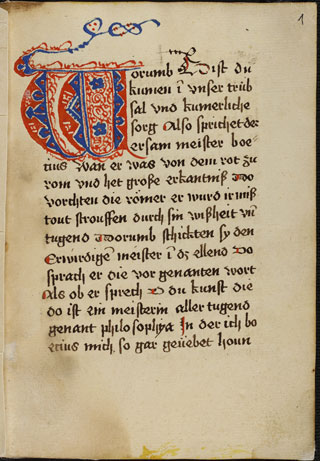 1
Worumb bist du
kumen i vnser trüb
sal vnd kumerliche
sorg Also sprichet der
ersam meister boe
tius wan er was von dem rot zu
rom vnd het große erkantniß Do
vorchten die römer er wurd ir miß
tout strouffen durch sin wißheit vn̄
tugend Dorumb schickten sy den
Erwirdigē meister ī dz ellend Do
sprach er die vor genanten wort
Als ob er sprech O du kunst die
do ist ein meisterin aller tugend
genant philosophya In der ich bo
etius mich so gar geüebet houn